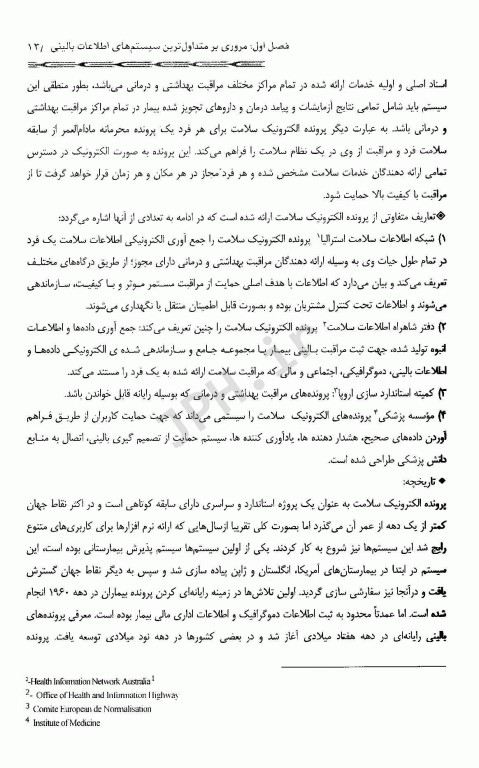 فصل اول: مروری بر متداول‌ترین سیستم‌های اطلاعات بالینی /۱۳
اسناد اصلی و اولیه خدمات ارائه شده در تمام مراکز مختلف مراقبت بهداشتی و درمانی می‌باشد، بطور منطقی این
سیستم باید شامل تمامی نتایج آزمایشات و پیامد درمان و داروهای تجویز شده بیمار در تمام مراکز مراقبت بهداشتی
و درمانی باشد. به عبارت دیگر پرونده الکترونیک سلامت برای هر فرد یک پرونده محرمانه مادام‌العمر از سابقه
سلامت فرد و مراقبت از وی در یک نظام سلامت را فراهم می‌کند. این پرونده به صورت الکترونیک در دسترس
تمامی ارائه دهندگان خدمات سلامت مشخص شده و هر فرد مجاز در هر مکان و هر زمان قرار خواهد گرفت تا از
مراقبت با کیفیت بالا حمایت شود.
◈تعاریف متفاوتی از پرونده الکترونیک سلامت ارائه شده است که در ادامه به تعدادی از آنها اشاره می‌گردد:
۱) شبکه اطلاعات سلامت استرالیا¹ پرونده الکترونیک سلامت را جمع آوری الکترونیکی اطلاعات سلامت یک فرد
در تمام طول حیات وی به وسیله ارائه دهندگان مراقبت بهداشتی و درمانی دارای مجوز؛ از طریق درگاه‌های مختلف
تعریف می‌کند و بیان می‌دارد که اطلاعات با هدف اصلی حمایت از مراقبت مستمر موثر و با کیفیت، سازماندهی
می‌شوند و اطلاعات تحت کنترل مشتریان بوده و بصورت قابل اطمینان منتقل یا نگهداری می‌شوند.
۲) دفتر شاهراه اطلاعات سلامت² پرونده الکترونیک سلامت را چنین تعریف می‌کند: جمع آوری داده‌ها و اطلاعات
انبوه تولید شده، جهت ثبت مراقبت بالینی بیمار با مجموعه جامع و سازماندهی شده ی الکترونیکی داده‌ها و
اطلاعات بالینی، دموگرافیکی، اجتماعی و مالی که مراقبت سلامت ارائه شده به یک فرد را مستند می‌کند.
۳) کمیته استاندارد سازی اروپا³: پرونده‌های مراقبت بهداشتی و درمانی که بوسیله رایانه قابل خواندن باشد.
۴) مؤسسه پزشکی⁴ پرونده‌های الکترونیک سلامت را سیستمی می‌داند که جهت حمایت کاربران از طریق فراهم
آوردن داده‌های صحیح، هشدار دهنده ها، یادآوری کننده ها، سیستم حمایت از تصمیم گیری بالینی، اتصال به منابع
دانش پزشکی طراحی شده است.
◈ تاریخچه:
پرونده الکترونیک سلامت به عنوان یک پروژه استاندارد و سراسری دارای سابقه کوتاهی است و در اکثر نقاط جهان
کمتر از یک دهه از عمر آن می‌گذرد اما بصورت کلی تقریبا ازسال‌هایی که ارائه نرم افزارها برای کاربری‌های متنوع
رایج شد این سیستم‌ها نیز شروع به کار کردند. یکی از اولین سیستم‌ها سیستم پذیرش بیمارستانی بوده است، این
سیستم در ابتدا در بیمارستان‌های آمریکا، انگلستان و ژاپن پیاده سازی شد و سپس به دیگر نقاط جهان گسترش
یافت و درآنجا نیز سفارشی سازی گردید. اولین تلاش‌ها در زمینه رایانه‌ای کردن پرونده بیماران در دهه ۱۹۶۰ انجام
شده است. اما عمدتاً محدود به ثبت اطلاعات دموگرافیک و اطلاعات اداری مالی بیمار بوده است. معرفی پرونده‌های
بالینی رایانه‌ای در دهه هفتاد میلادی آغاز شد و در بعضی کشورها در دهه نود میلادی توسعه یافت. پرونده
¹-Health Information Network Australia¹
²- Office of Health and Information Highway
³ Comite European de Normalisation
⁴ Institute of Medicine
JPH.ir